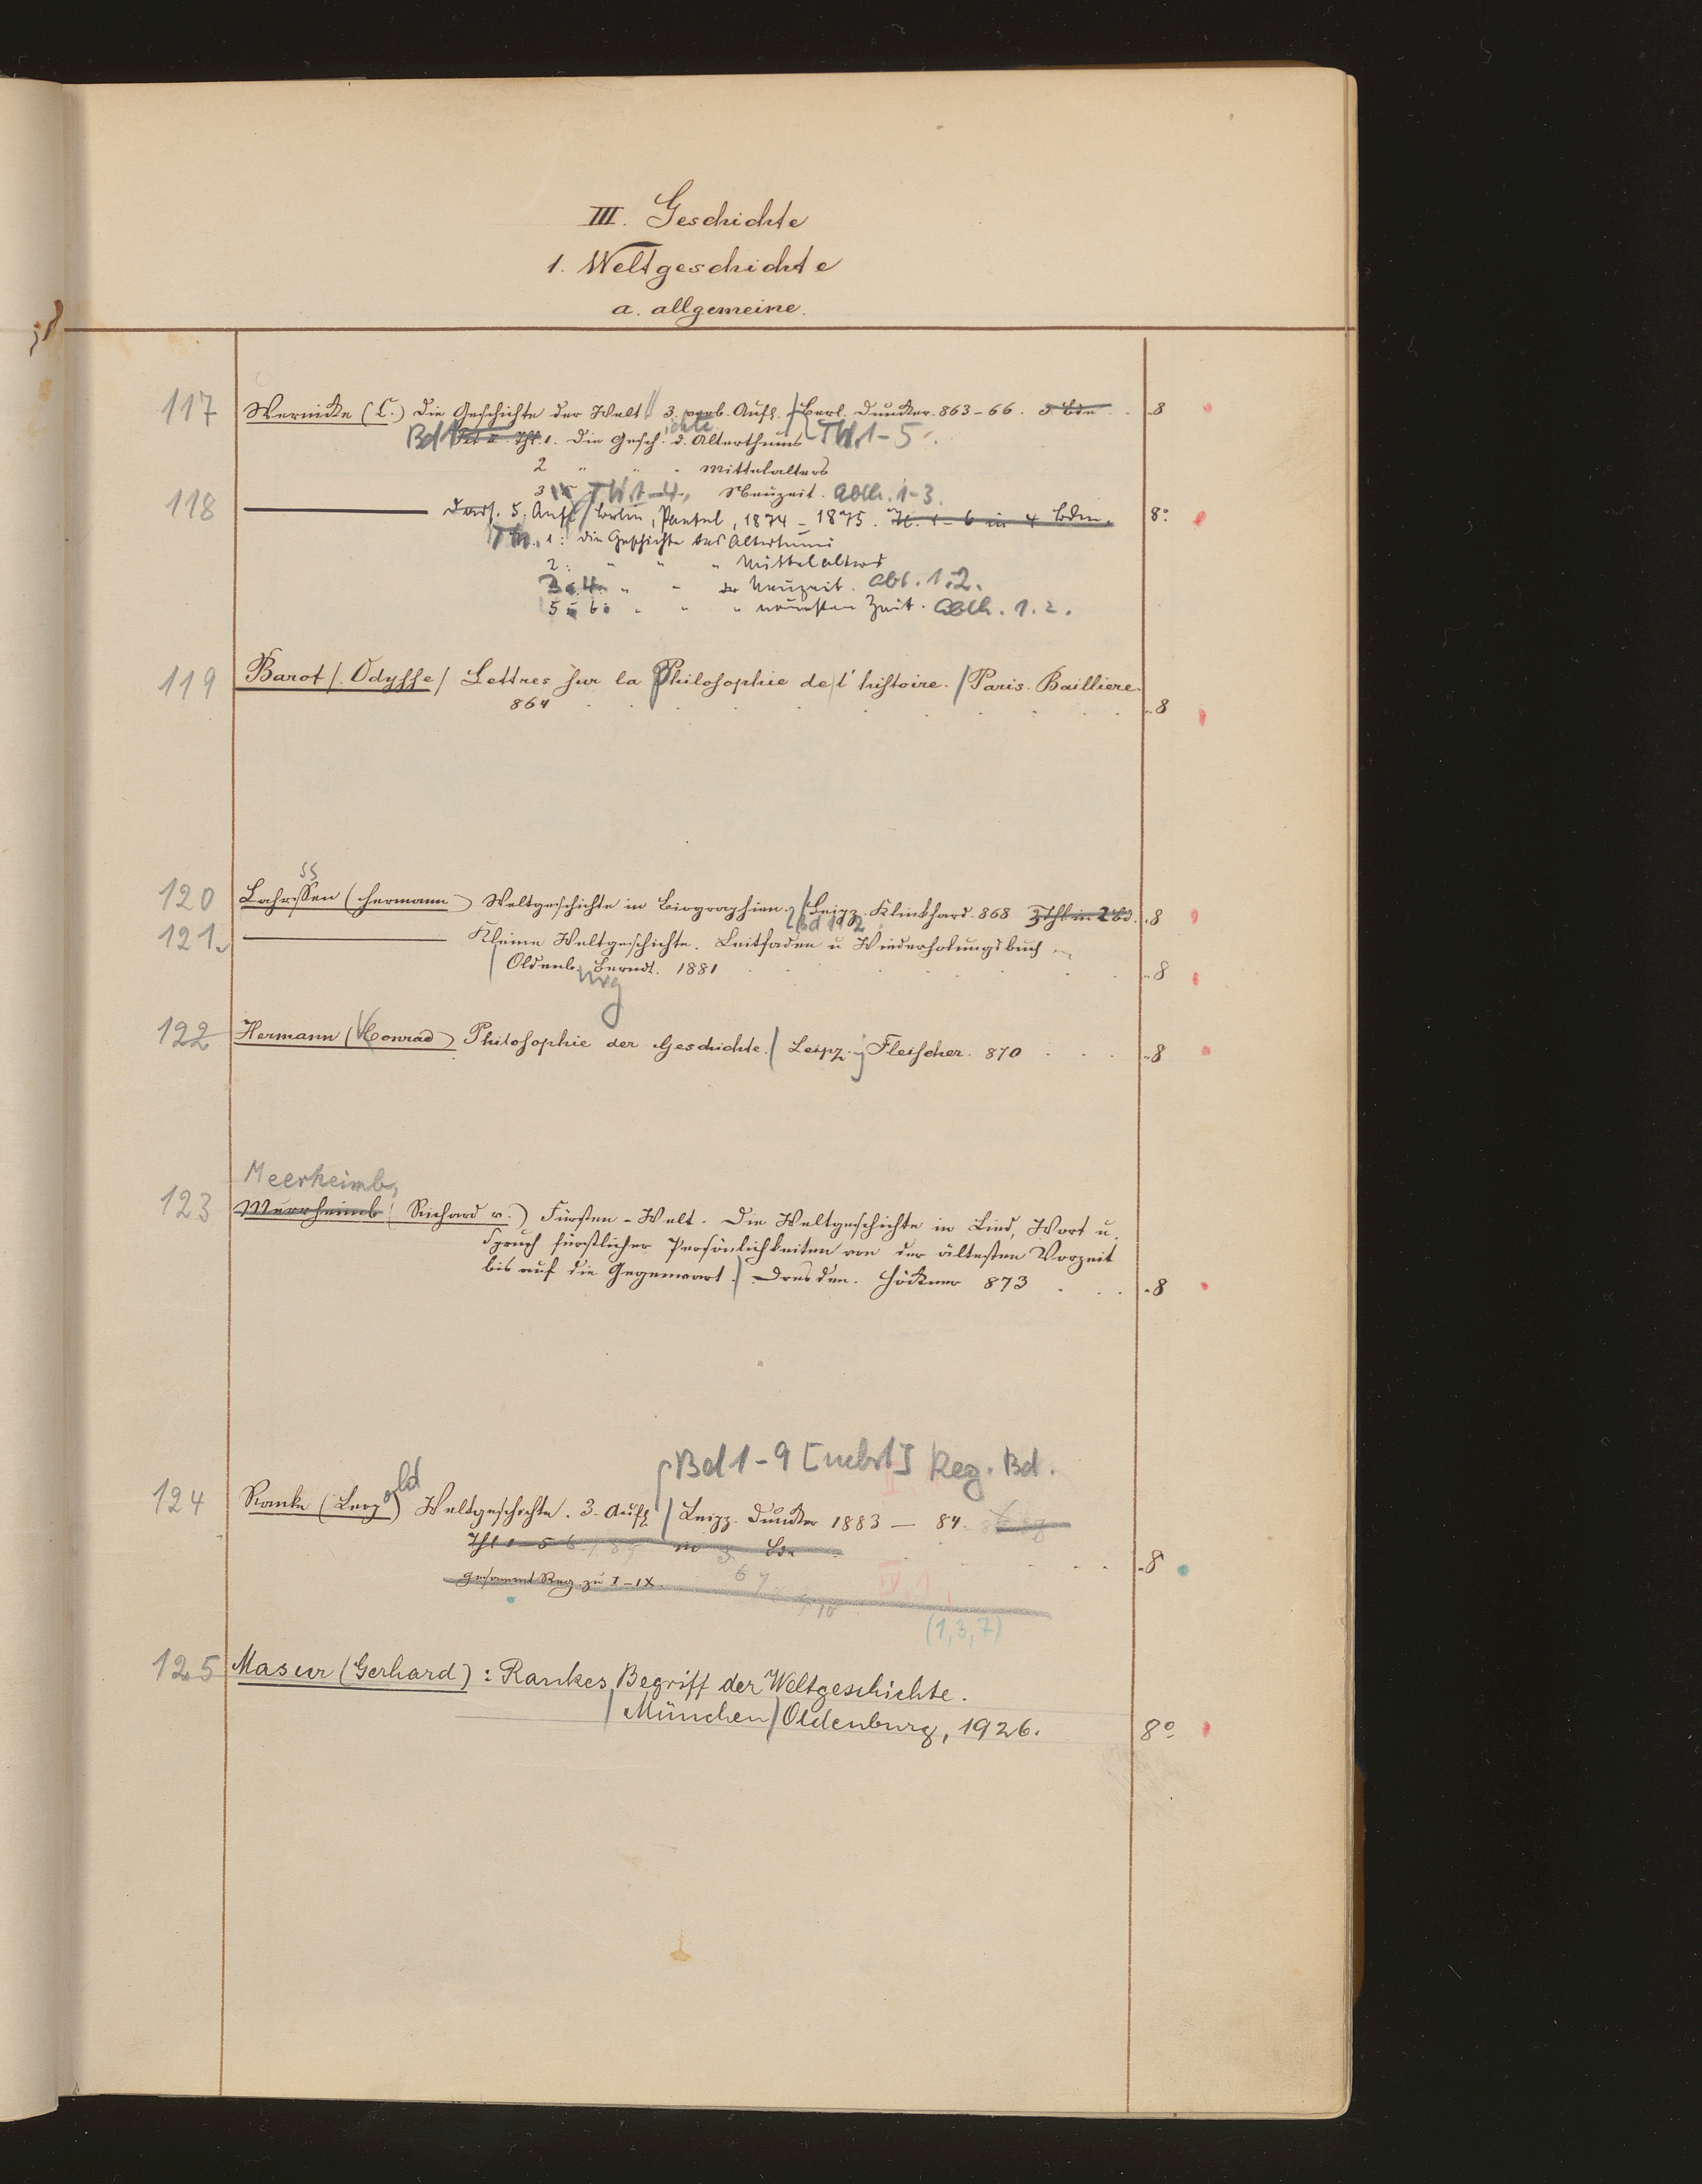 III. Geschichte
1. Weltgeschichte
a. allgemeine.
117 Wernicke (C.) Die Geschichte der Welt. 3. verb. Aufl. / Berl. Duncker. 863-66. 3 Bde . . 8
Bd 1 Thl. 1. Die Geschichte d. Alterthums Thl. 1-5.
2 " " " Mittelalters
3 Thl. 1-4. Neuzeit. Abth. 1-3.
118 ——— Dass. 5. Aufl / Berlin, Paetel, 1874-1875. Tl. 1-6 in 4 Bdn. 8°
Th. 1: Die Geschichte des Altertums
2: " " " Mittelalters
3 u. 4. " " der Neuzeit. Abt. 1.2.
5 u. 6: " " " neuesten Zeit. Abth. 1.2.
119 Barot /. Odysse / Lettres sur la Philosophie de l'histoire. / Paris. Bailliere.
864 . . . . . . . . . . 8
120 Lahrssen (Hermann) Weltgeschichte in Biographien. / Leipz. Klinkhard. 868 3 Thl in 2 Bd. . 8
Bd 1 u 2
121. ——— Kleine Weltgeschichte. Leitfaden u Wiederholungsbuch
/ Oldenburg Berndt. 1881 . . . . . . 8
122 Hermann (Conrad) Philosophie der Geschichte. / Leipz. Fleischer. 870 . . . . 8
Meerheimb,
123 Meerheimb (Richard v.) Fürsten-Welt. Die Weltgeschichte in Lied, Wort u.
Spruch fürstlicher Persönlichkeiten von der ältesten Vorzeit
bis auf die Gegenwart. / Dresden. Höckner 873 . . . 8
Bd 1-9 [nebst] Reg. Bd.
124 Ranke (Leopold) Weltgeschichte. 3. Aufl / Leipz. Duncker 1883 — 84.
Thl 1-5 6. in 3 Bde . . . . . 8
Gesammt Reg. zu I-IX. 6 7
(1, 3, 7)
125 Masur (Gerhard) : Rankes Begriff der Weltgeschichte.
/ München / Oldenburg, 1926. 8°